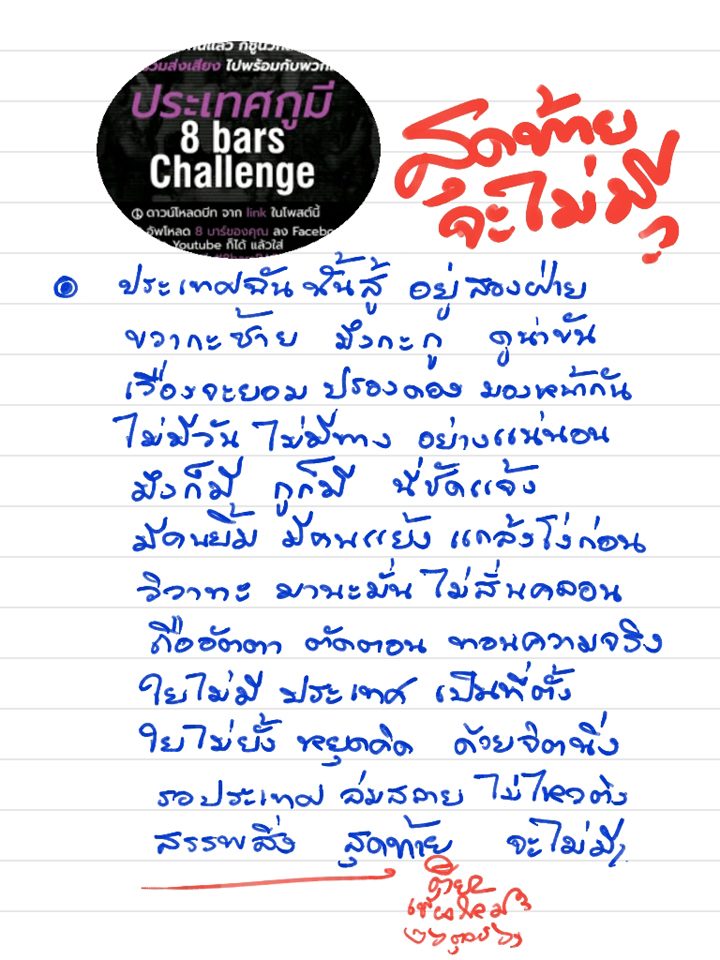 แล้ว ก็ชูนิ้ว
ร่วมส่งเสียง ไปพร้อมกับพวก
ประเทศกูมี
8 bars
Challenge
① ดาวน์โหลดบีท จาก link ในโพสต์นี้
อัพโหลด 8 บาร์ของคุณ ลง Facebo
Youtube ก็ได้ แล้วใส่
สุดท้าย
จะไม่มี
ประเทศฉัน นั้นสู้ อยู่สองฝ่าย
ขวากะซ้าย มึงกะกู ดูน่าขัน
เรื่องจะยอม ปรองดอง มองหน้ากัน
ไม่มีวัน ไม่มีทาง อย่างแน่นอน
มึงก็มี กูก็มี นี่ชัดแจ้ง
มีคนยิ้ม มีคนแย้ง แกล้งโง่ก่อน
วิวาทะ มานะมั่น ไม่สั่นคลอน
ถืออัตตา ตัดตอน ทอนความจริง
ใยไม่มี ประเทศ เป็นที่ตั้ง
ใยไม่ยั้ง หยุดคิด ด้วยจิตนิ่ง
รอประเทศ ล่มสลาย ไม่ไหวติง
สรรพสิ่ง สุดท้าย จะไม่มี